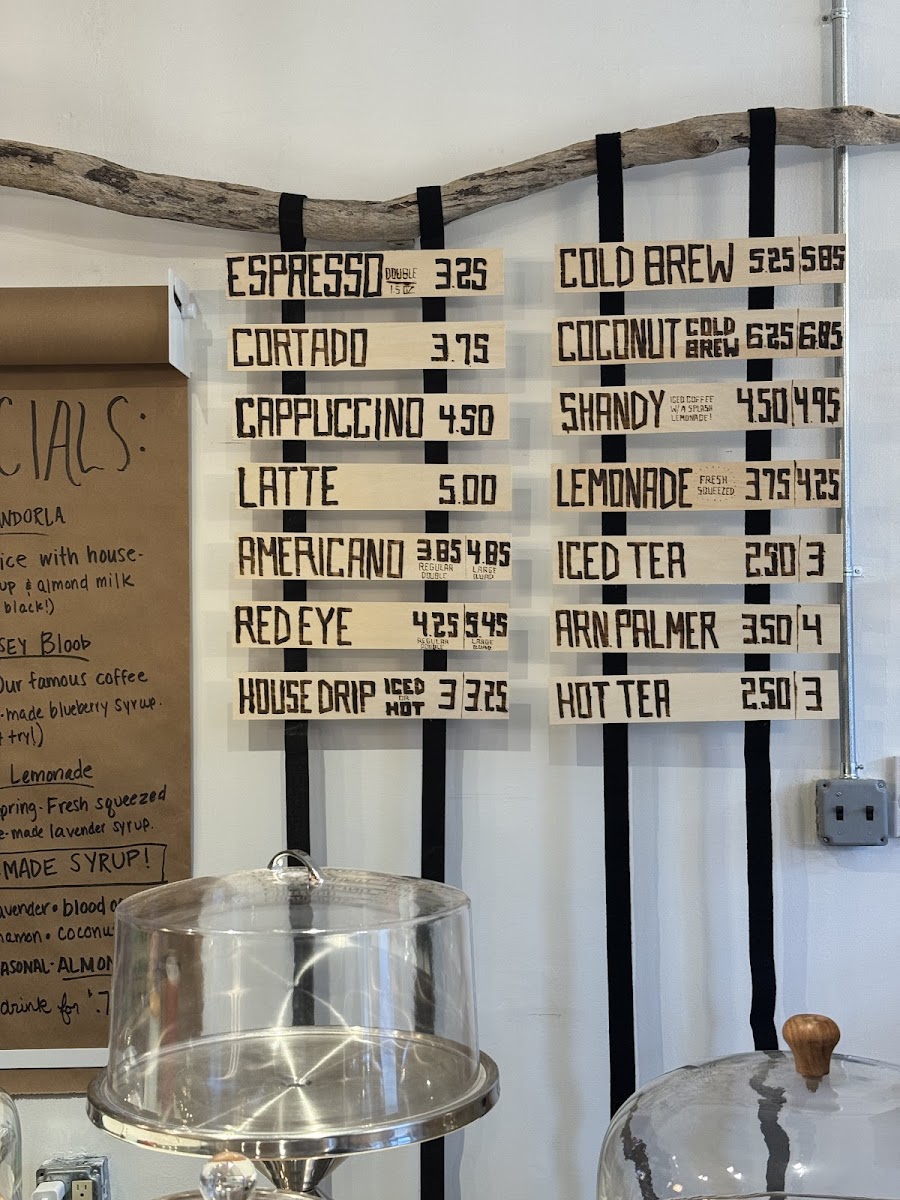 CIALS:
NDORLA
ice with house-
up & almond milk
black!)
SEY Bloob
Our famous coffee
-made blueberry syrup.
try!)
Lemonade
pring. Fresh squeezed
e-made lavender syrup.
MADE SYRUP!
avender • blood o
namon • coconu
ASONAL - ALMON
drink for $.7
ESPRESSO DOUBLE 1.5 OZ 3.25
CORTADO 3.75
CAPPUCCINO 4.50
LATTE 5.00
AMERICANO 3.85 REGULAR DOUBLE 4.85 LARGE QUAD
RED EYE 4.25 REGULAR DOUBLE 5.45 LARGE QUAD
HOUSE DRIP ICED OR HOT 3 3.25
COLD BREW 5.25 5.85
COCONUT COLD BREW 6.25 6.85
SHANDY ICED COFFEE W/ A SPLASH LEMONADE! 4.50 4.95
LEMONADE FRESH SQUEEZED 3.75 4.25
ICED TEA 2.50 3
ARN.PALMER 3.50 4
HOT TEA 2.50 3